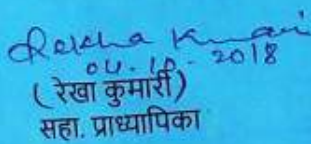 Rekha Kumari
04.10.2018
(रेखा कुमारी)
सहा. प्राध्यापिका